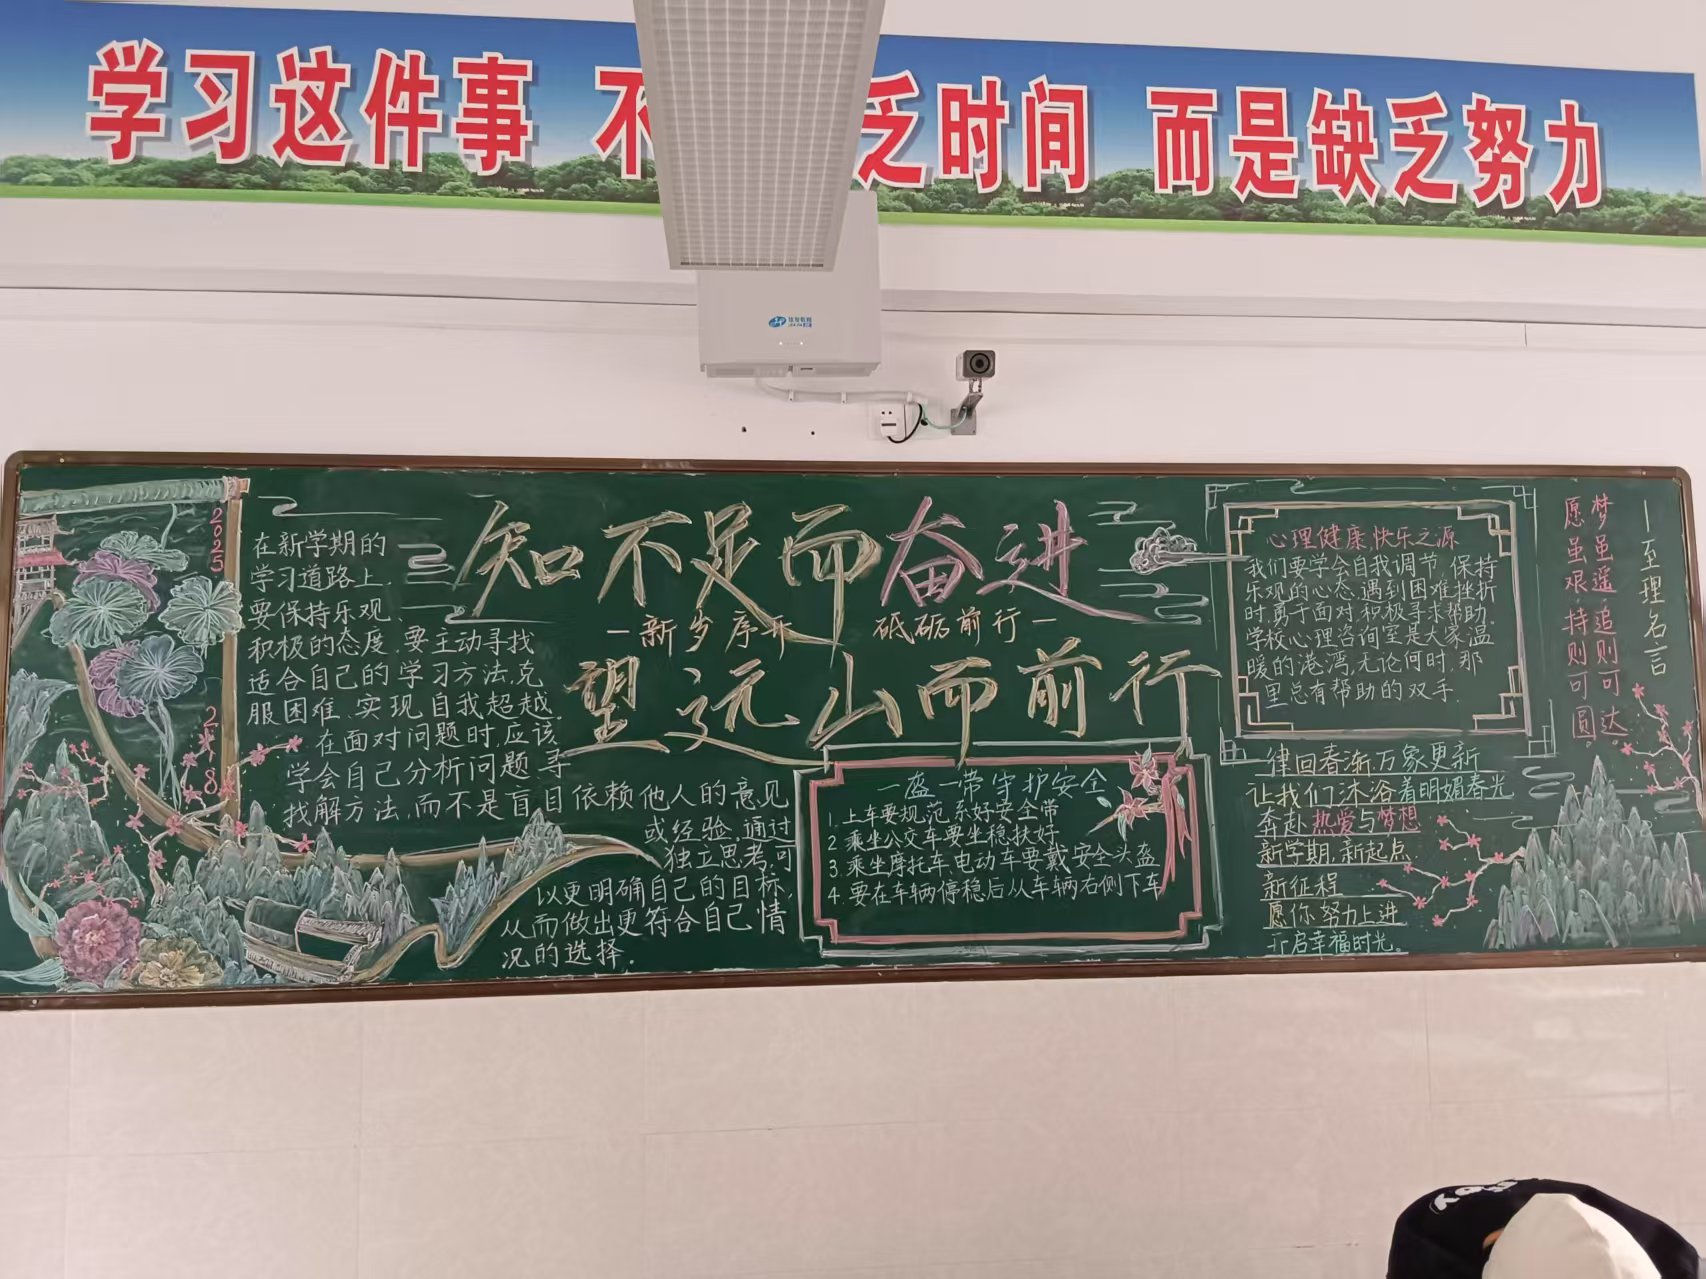 学习这件事 不 乏时间 而是缺乏努力
2025
2.18
在新学期的
学习道路上,
要保持乐观、
积极的态度,要主动寻找
适合自己的学习方法,克
服困难、实现自我超越。
在面对问题时,应该
学会自己分析问题、寻
找解方法,而不是盲目依赖他人的意见
或经验,通过
独立思考,可
以更明确自己的目标,
从而做出更符合自己情
况的选择。
知不足而奋进
—新岁序开 砥砺前行—
望远山而前行
一盔一带守护安全
1.上车要规范系好安全带
2.乘坐公交车要坐稳扶好
3.乘坐摩托车,电动车要戴安全头盔
4.要在车辆停稳后从车辆右侧下车
心理健康,快乐之源
我们要学会自我调节,保持
乐观的心态,遇到困难挫折
时,勇于面对,积极寻求帮助,
学校心理咨询室是大家温
暖的港湾,无论何时,那
里总有帮助的双手.
律回春渐,万象更新
让我们沐浴着明媚春光
奔赴热爱与梦想
新学期,新起点
新征程
愿你努力上进
开启幸福时光。
—至理名言
梦虽遥追则可达
愿虽艰持则可圆